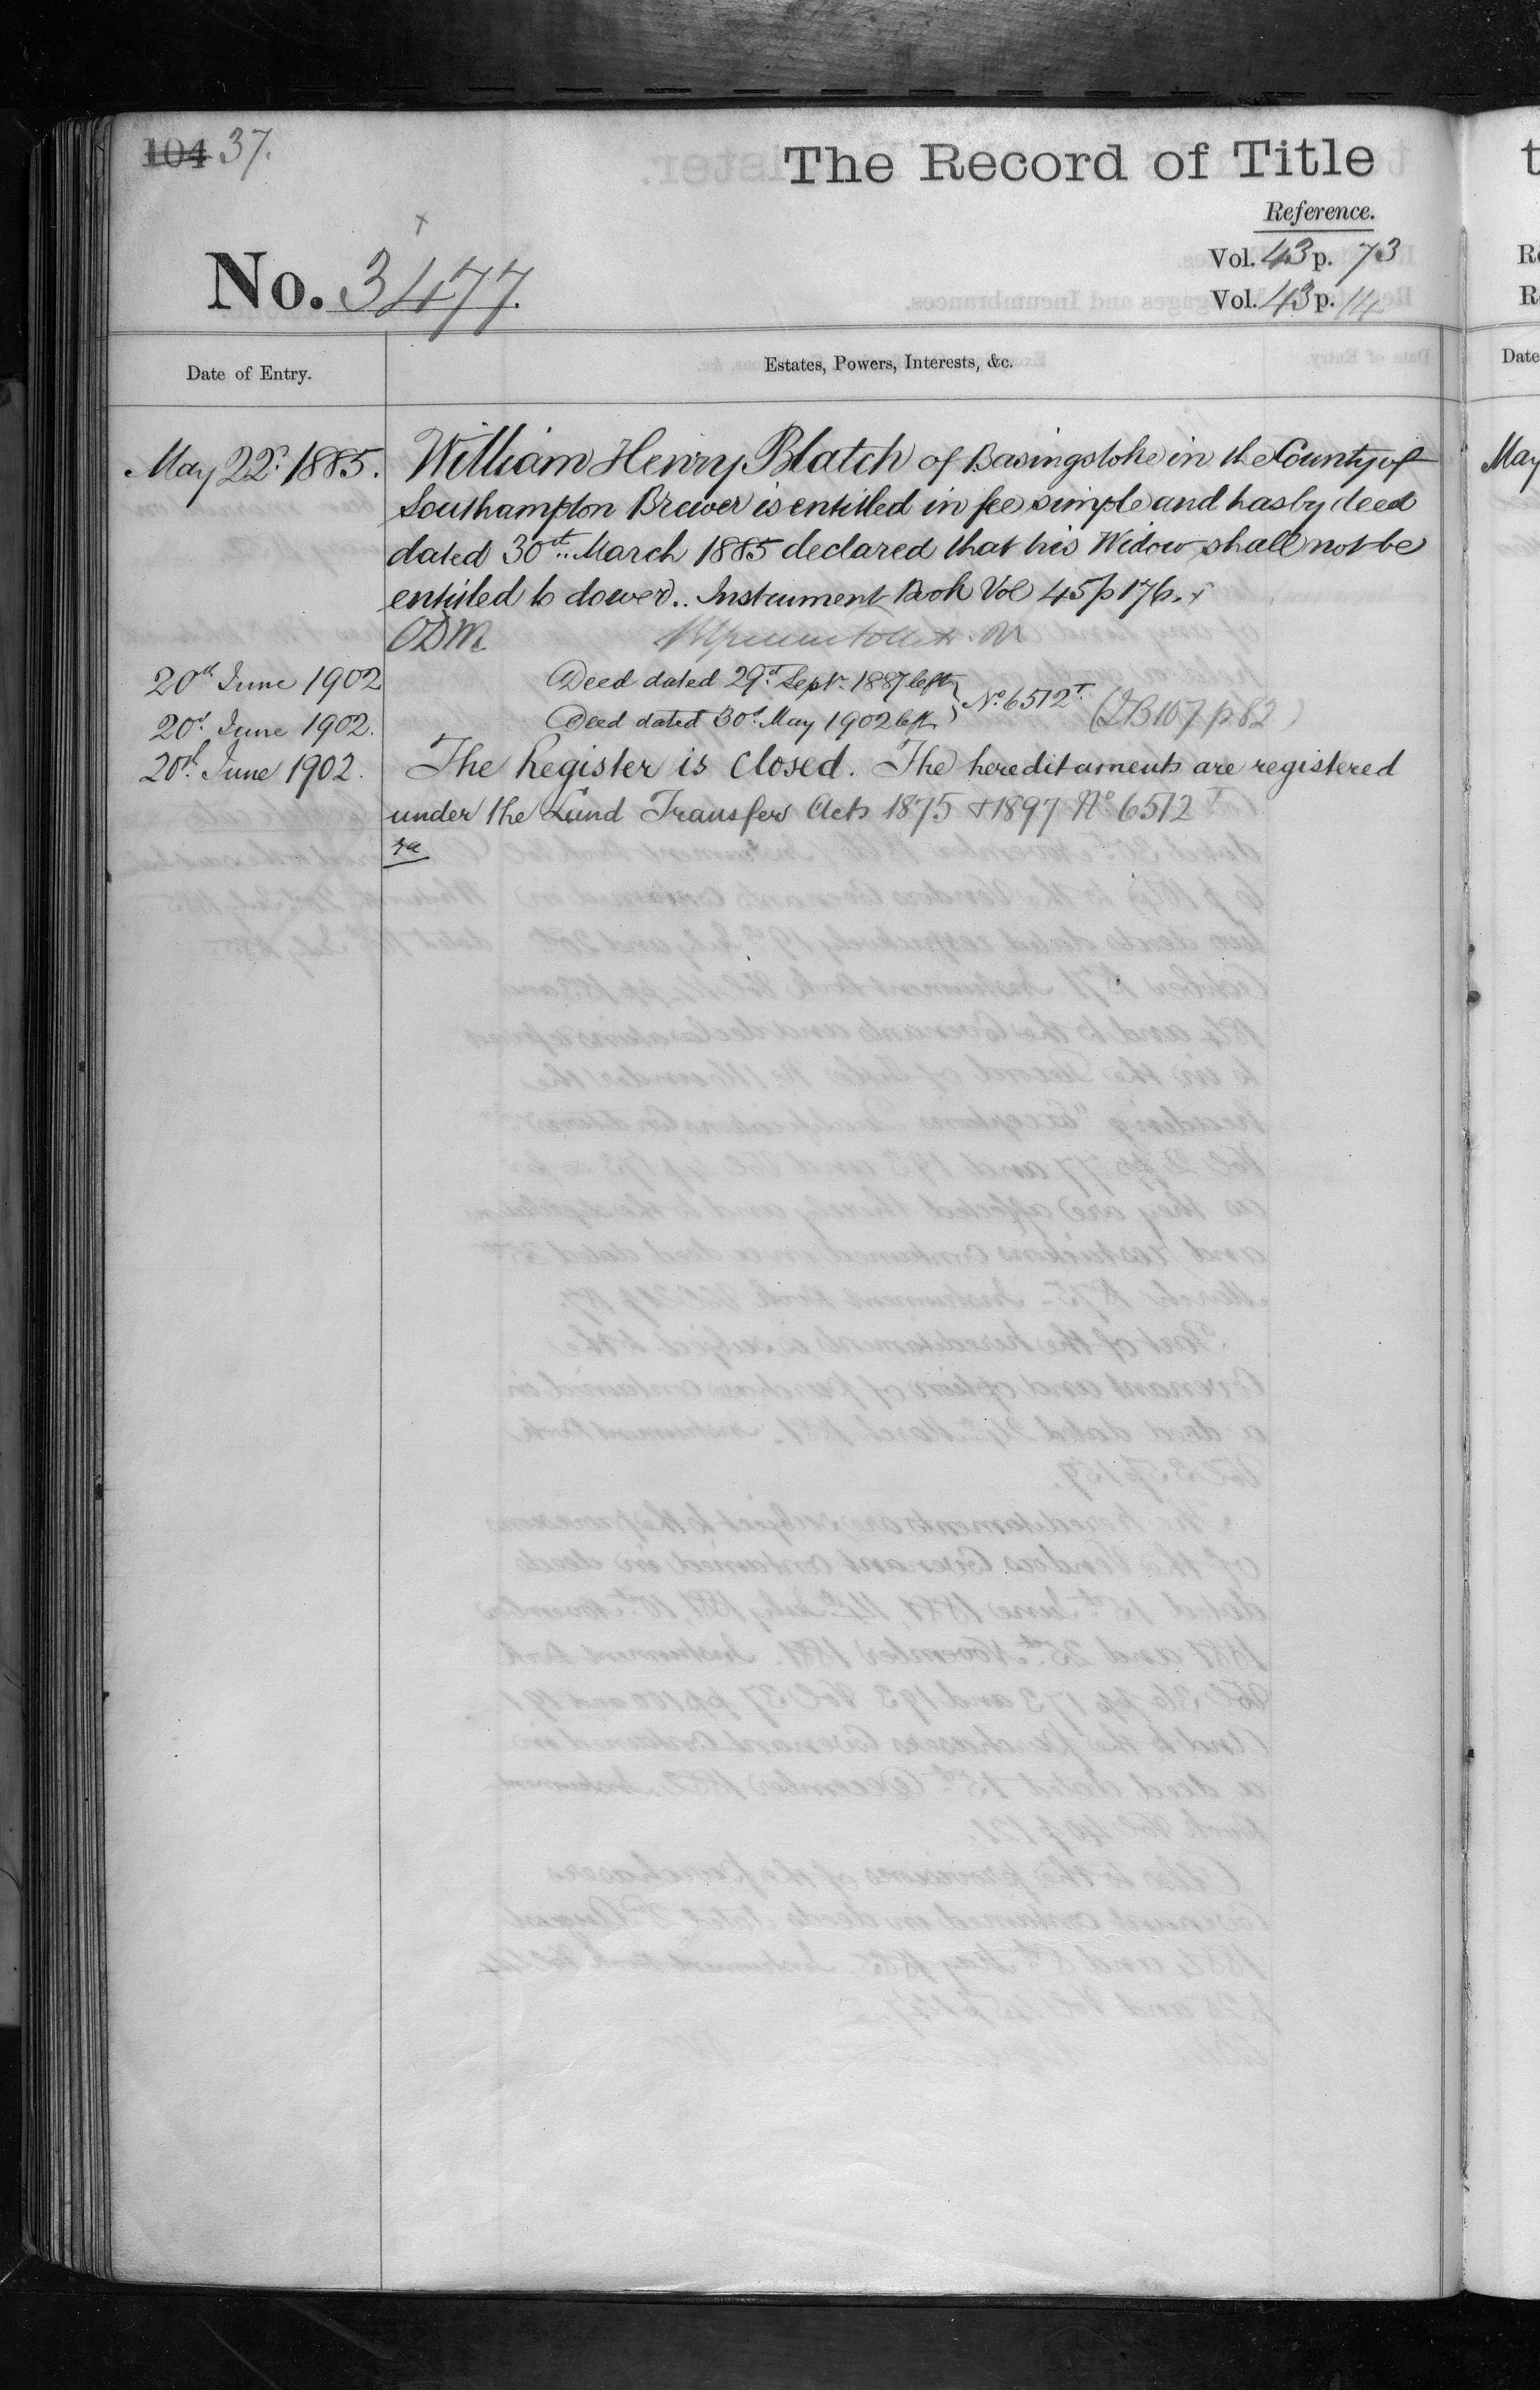 104 37.
The Record of Title
Reference.
Vol. 43 p. 73
No. 3477.
Vol. 43 p. 14
Date of Entry.
Estates, Powers, Interests, &c.
May 22d. 1885. William Henry Blatch of Basingstoke in the County of
Southampton Brewer is entitled in fee simple and has by deed
dated 30th.. March 1885 declared that his Widow shall not be
entitled to dower.. Instrument Book Vol 45 p 176.
ODM
20th June 1902 Deed dated 29th Septr 1887 left
20th June 1902. Deed dated 30th May 1902 left } No. 6512 T (IB 107 p 82)
20th June 1902. The Register is Closed. The hereditaments are registered
under the Land Transfer Acts 1875 & 1897 No 6512 T